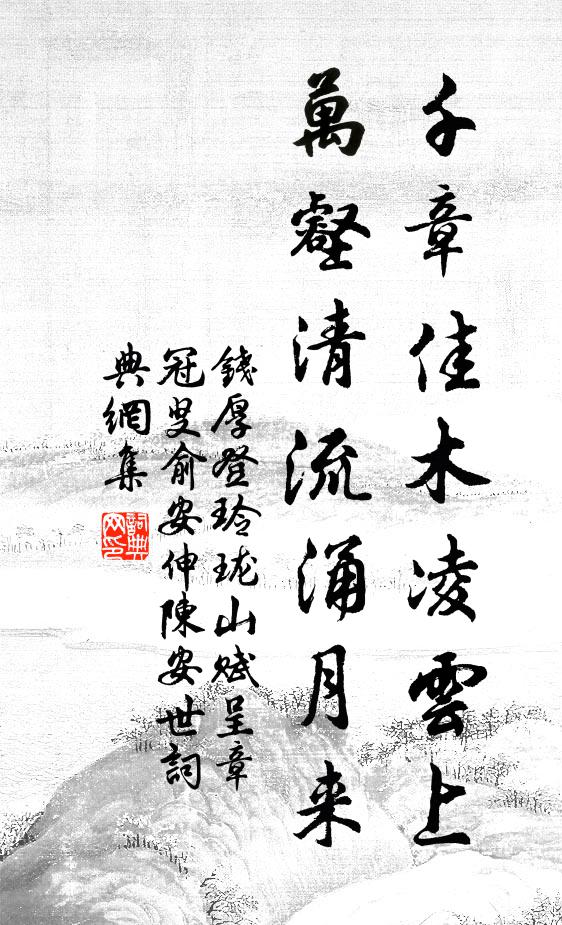 千章佳木凌雲上
萬壑清流涌月来
錢厚登玲瓏山賦呈章
冠叟俞安伸陳安世詞
典網集
詞典網印